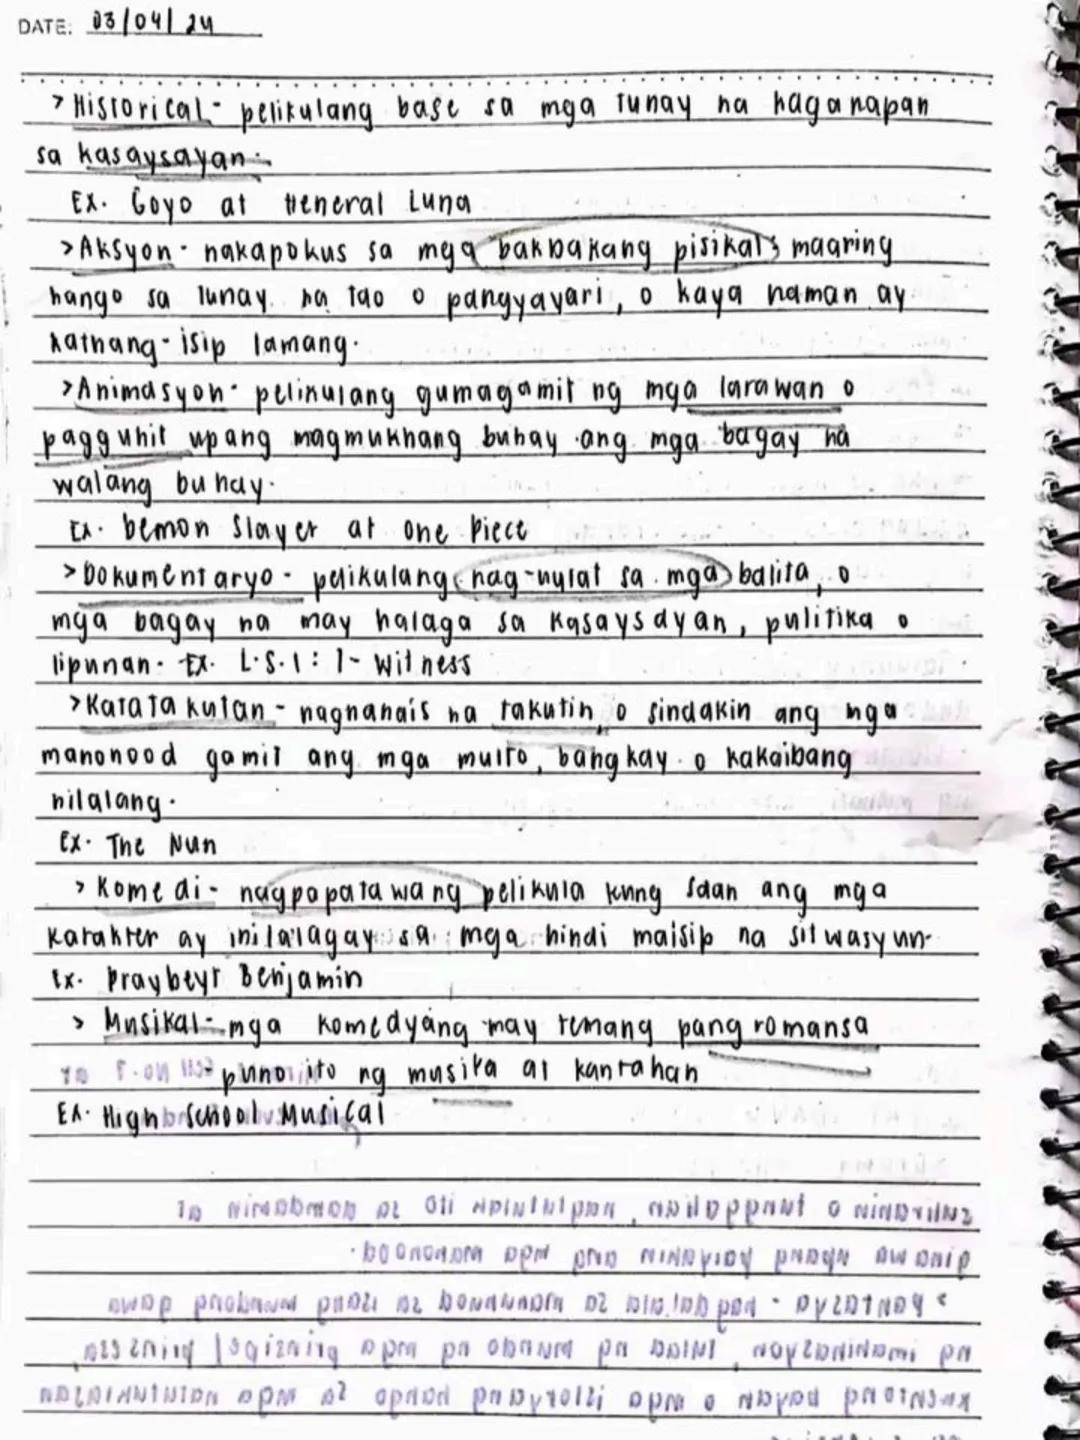 DATE: 03/04/24
> Historical - pelikulang base sa mga tunay na haganapan
sa kasaysayan.
Ex. Goyo at Heneral Luna
> Aksyon - nakapokus sa mga bakbakang pisikal; maaring
hango sa tunay na tao o pangyayari, o kaya naman ay
kathang-isip lamang.
> Animasyon - pelikulang gumagamit ng mga larawan o
pagguhit upang magmukhang buhay ang mga bagay na
walang buhay.
Ex. Demon Slayer at One Piece
> Dokumentaryo - pelikulang nag-uulat sa mga balita, o
mga bagay na may halaga sa kasaysayan, pulitika o
lipunan. Ex. L.S.1: 1-Witness
> Katatakutan - nagnanais na takutin o sindakin ang mga
manonood gamit ang mga multo, bangkay o kakaibang
nilalang.
Ex. The Nun
> Komedi - nagpapatawang pelikula kung saan ang mga
karakter ay inilalagay sa mga hindi maisip na sitwasyun.
Ex. Praybeyt Benjamin
> Musikal - mga komedyang may temang pang romansa
- puno ito ng musika at kantahan
Ex. High School Musical